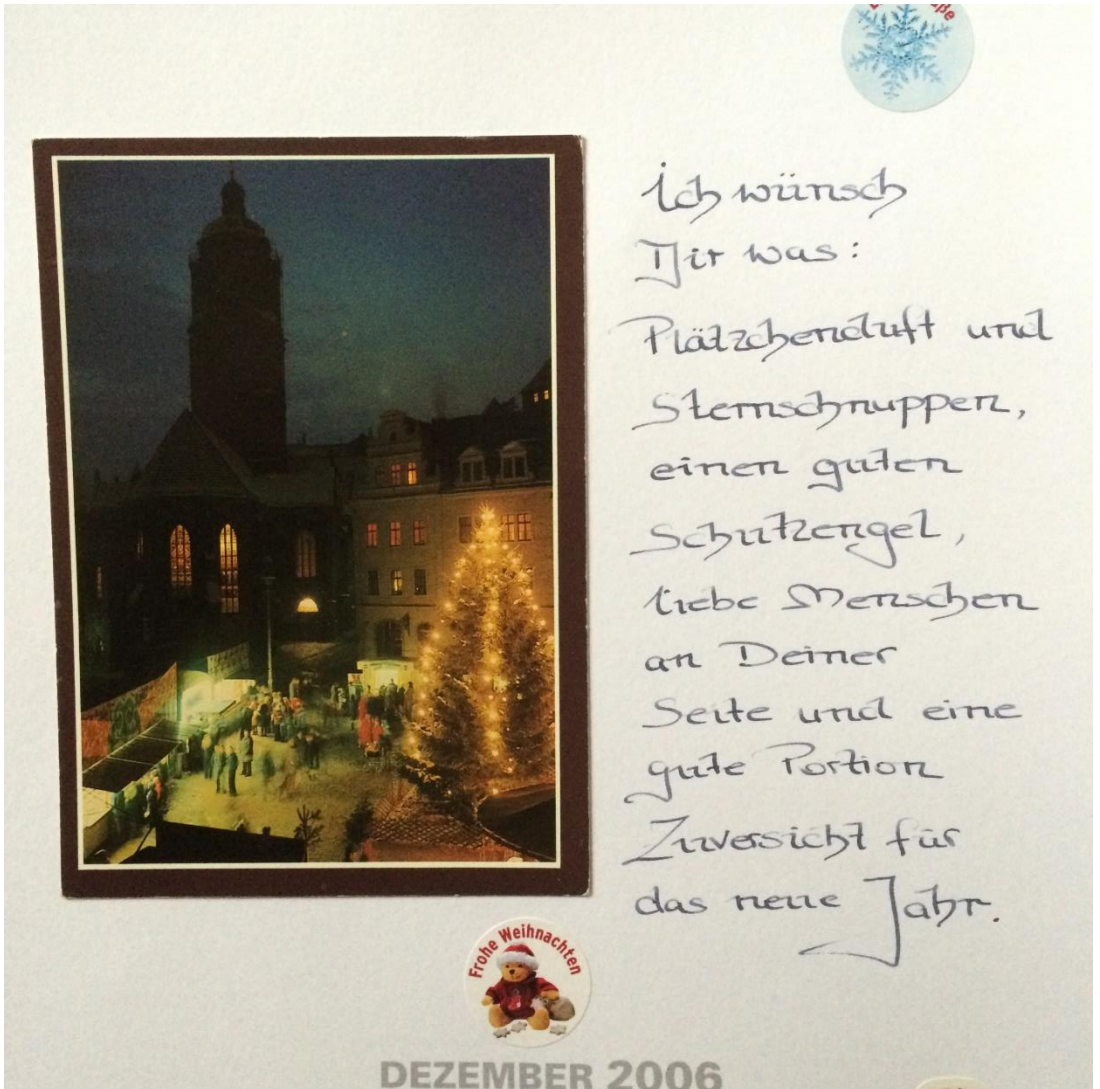 Ich wünsch
Dir was:
Plätzchenduft und
Sternschnuppen,
einen guten
Schutzengel,
liebe Menschen
an Deiner
Seite und eine
gute Portion
Zuversicht für
das neue Jahr.
Frohe Weihnachten
DEZEMBER 2006